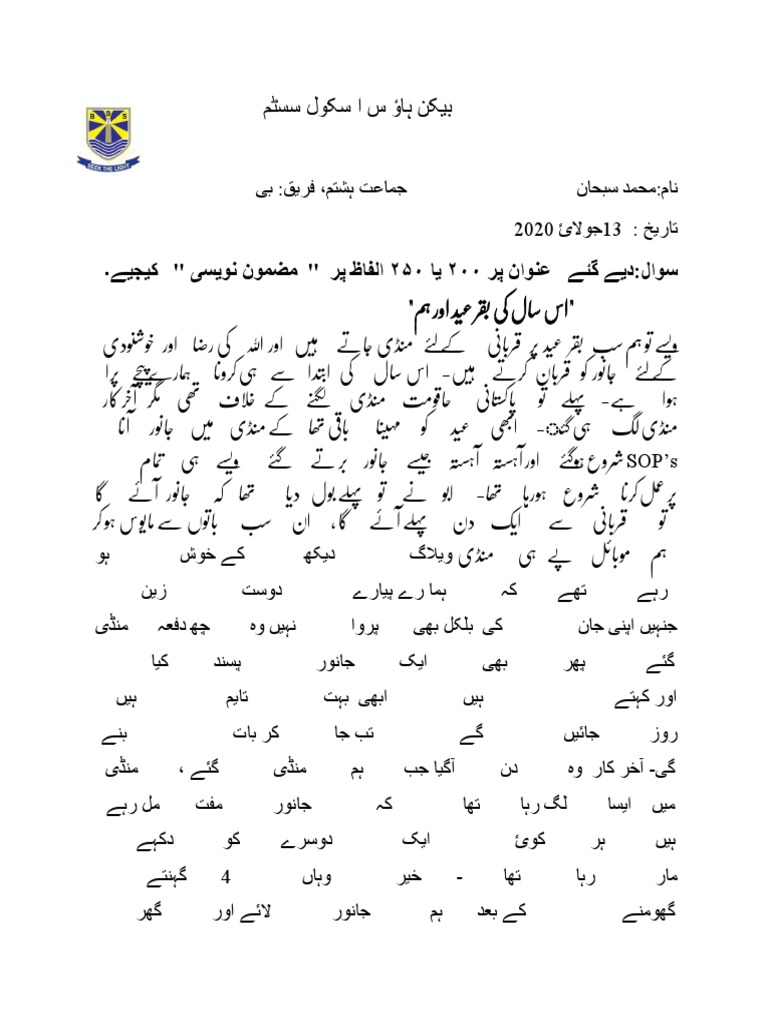 بیکن ہاؤ س ا سکول سسٹم
B S S
SEEK THE LIGHT
نام:محمد سبحان جماعت ہشتم، فریق: بی
تاریخ : 13جولائ 2020
سوال:دیے گئے عنوان پر ۲۰۰ یا ۲۵۰ الفاظ پر " مضمون نویسی " کیجیے.
"اس سال کی بقر عید اور ہم"
ویسے تو ہم سب بقر عید پر قربانی کے لئے منڈی جاتے ہیں اور اللہ کی رضا اور خوشنودی
کے لئے جانور کو قربان کرتے ہیں- اس سال کی ابتدا سے ہی کرونا ہمارے پیچھے پرا
ہوا ہے- پہلے تو پاکستانی حاقومت منڈی لگنے کے خلاف تھی مگر آخر کار
منڈی لگ ہی گئ- ابھی عید کو مہینا باقی تھا کے منڈی میں جانور آنا
شروع ہوگئے اورآہستہ آہستہ جیسے جانور برتے گئے ویسے ہی تمام SOP’s
پر عمل کرنا شروع ہورہا تھا- ابو نے تو پہلے بول دیا تھا کہ جانور آئے گا
تو قربانی سے ایک دن پہلے آئے گا، ان سب باتوں سے مایوس ہوکر
ہم موبائل پے ہی منڈی ویلاگ دیکھ کے خوش ہو
رہے تھے کہ ہما رے پیارے دوست زین
جنہیں اپنی جان کی بلکل بھی پروا نہیں وہ چھ دفعہ منڈی
گئے پھر بھی ایک جانور پسند کیا
اور کہتے ہیں ابھی بہت تایم ہیں
روز جائیں گے تب جا کر بات بنے
گی- آخر کار وہ دن آگیا جب ہم منڈی گئے ، منڈی
میں ایسا لگ رہا تھا کہ جانور مفت مل رہے
ہیں ہر کوئ ایک دوسرے کو دکہے
مار رہا تھا - خیر وہاں 4 گھنتے
گھومنے کے بعد ہم جانور لائے اور گھر